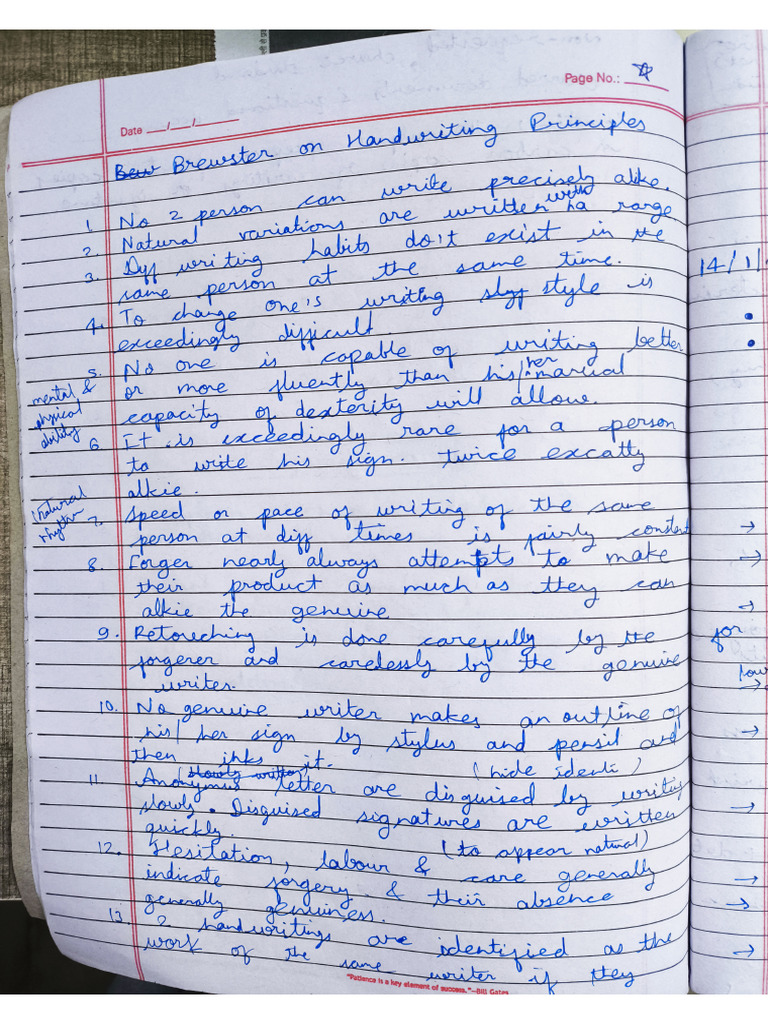 Page No.: ☆
Date __/__/____
Brew Brewster on Handwriting Principles
1. No 2 person can write precisely alike.
2. Natural variations are written with a range
3. Diff writing habits do't exist in the
same person at the same time.
4. To change one's writing style is
exceedingly difficult.
5. No one is capable of writing better
or more fluently than his/her manual
capacity of dexterity will allow.
mental &
physical
ability
6. It is exceedingly rare for a person
to write his sign. twice excatly
alkie.
Natural
rhythm
7. Speed or pace of writing of the same
person at diff times is fairly constent
8. Forger nearly always attempts to make
their product as much as they can
alkie the genuine
9. Retouching is done carefully by the
forgerer and carelessly by the genuine
writes.
10. No genuine writer makes an outline of
his/her sign by stylus and pensil and
then inks it. (hide identi)
(slowly written)
11 Anonymus letter are disguised by writing
slowly. Disguised signatures are written
quickly. (to appear natural)
12. Hesitation, labour & care generally
indicate forgery & their absence
generally genuiness.
13. 2 handwritings are identified as the
work of the same writer if they
"Patience is a key element of success."--Bill Gates
14/11/
for